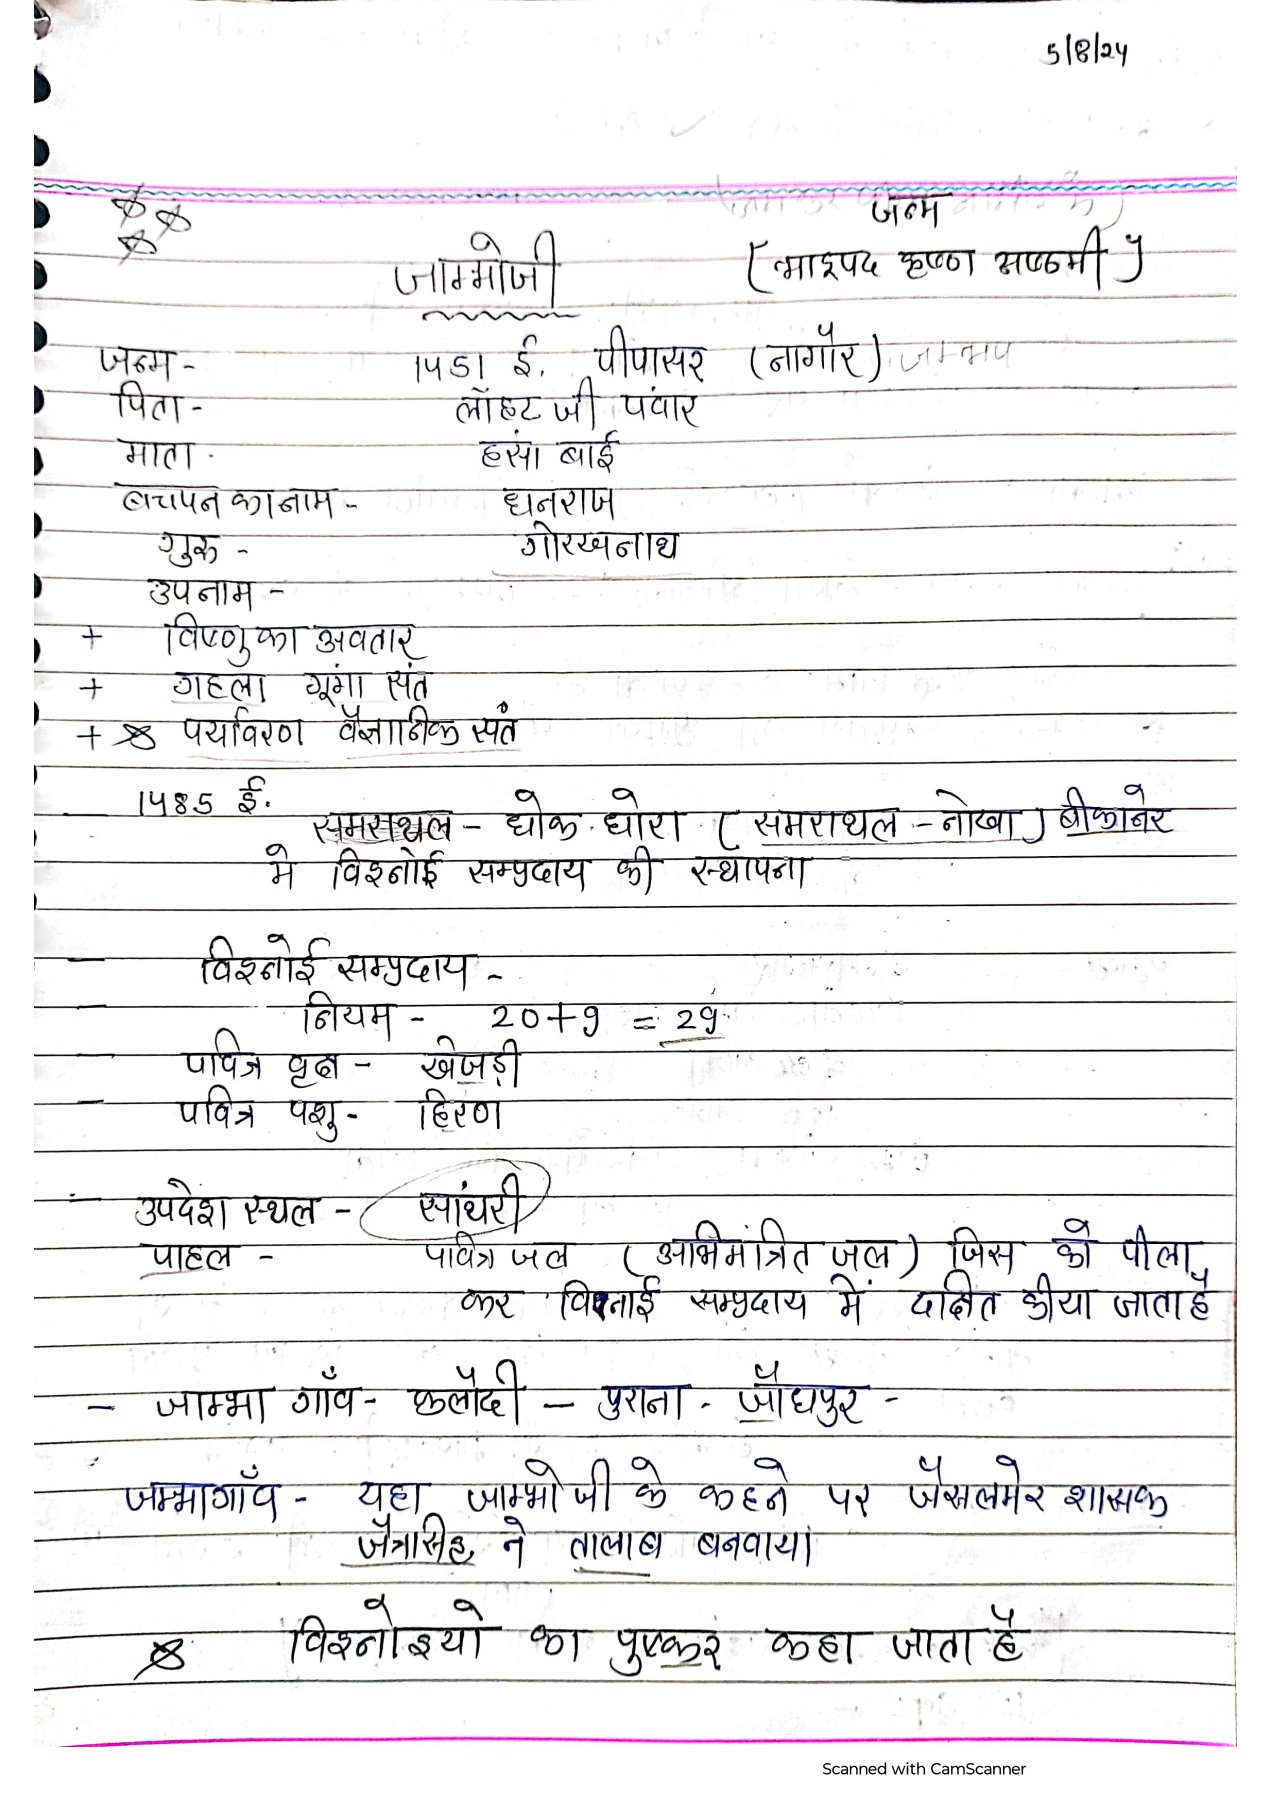 5/8/24
जन्म
जाम्भोजी (भाद्रपद कृष्ण अष्ठमी)
जन्म- 1451 ई. पीपासर (नागौर)
पिता- लॉहट जी पंवार
माता- हंसा बाई
बचपन का नाम - धनराज
गुरु - गोरखनाथ
उपनाम -
+ विष्णु का अवतार
+ गहला गूंगा संत
+ पर्यावरण वैज्ञानिक संत
- 1485 ई.
समराथल - धोक धोरा (समराथल - नोखा) बीकानेर
मे विश्नोई सम्प्रदाय की स्थापना
- विश्नोई सम्प्रदाय -
- नियम - 20+9 = 29
- पवित्र वृक्ष - खेजड़ी
- पवित्र पशु - हिरण
- उपदेश स्थल - सांथरी
पाहल - पवित्र जल (अभिमंत्रित जल) जिस को पीला
कर विश्नाई सम्प्रदाय में दाक्षित कीया जाता है
- जाम्भा गाँव - फलौदी - पुराना - जौधपुर -
जम्भागाँव - यहा जाम्भोजी के कहने पर जैसलमेर शासक
जैत्रासिंह ने तालाब बनवाया।
विश्नोइयो का पुष्कर कहा जाता है
Scanned with CamScanner